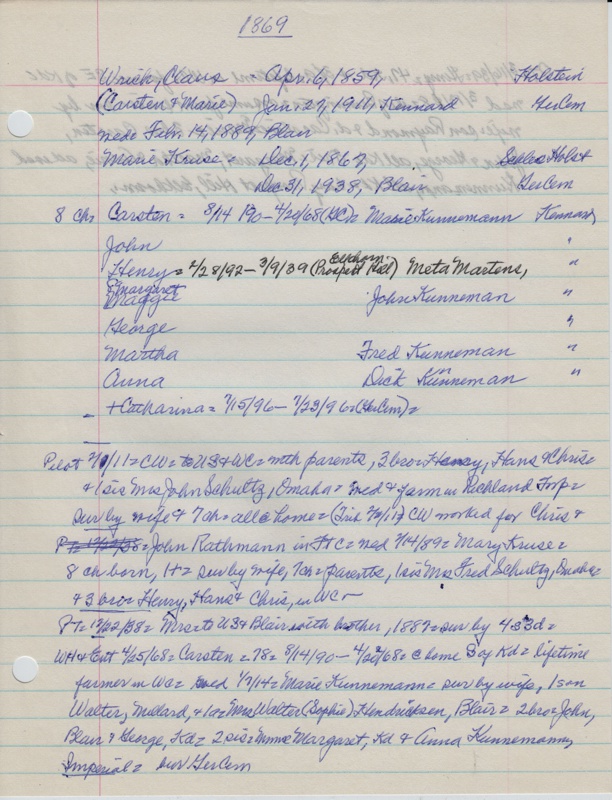 1869
Wrich, Claus = Apr. 6, 1859, Holstein
(Carsten & Marie) Jan. 27, 1911, Kennard GerCem
med Feb. 14, 1889, Blair
Marie Kruse = Dec. 1, 1867, Holst
Dec 31, 1938, Blair GerCem
8 chs Carsten = 8/14/90 - 4/20/68 (GC) = Marie Kunnemann Kennard
John "
Henry = 2/28/92 - 3/9/39 (Prospect Hill) Elkhorn Meta Martens, "
Margaret
Maggie John Kunneman "
George "
Martha Fred Kunneman "
Anna Dick Kunneman "
+ Catharina = 7/15/96 - 7/23/96 = (GerCem) =
Pilot = CW = to US & WC = with parents, 3 bro = Henry, Hans & Chris =
& 1 sis Mrs John Schultz, Omaha = med & farm in Richland Twp =
sur by wife & 7 ch = all @ home = CW worked for Chris &
John Rathmann in Ft C = med 2/14/89 = Mary Kruse =
8 ch born, 1+ = sur by wife, 7 ch = parents, 1 sis Mrs Fred Schultz, Omaha
& 3 bro = Henry, Hans & Chris, in WC -
PT = 12/22/38 = Mrs = to US & Blair with brother, 1887 = sur by 4s 3d =
WH & Ent 4/25/68 = Carsten = 78 = 8/14/90 - 4/20/68 = @ home Kd = lifetime
farmer in WC = med 1/7/14 = Marie Kunnemann = sur by wife, 1 son
Walter, Millard, & 1 d = Mrs Walter (Sophie) Hendricksen, Blair = 2 bro = John,
Blair & George, Kd = 2 sis = Margaret, Kd & Anna Kunnemann,
Imperial = bur GerCem